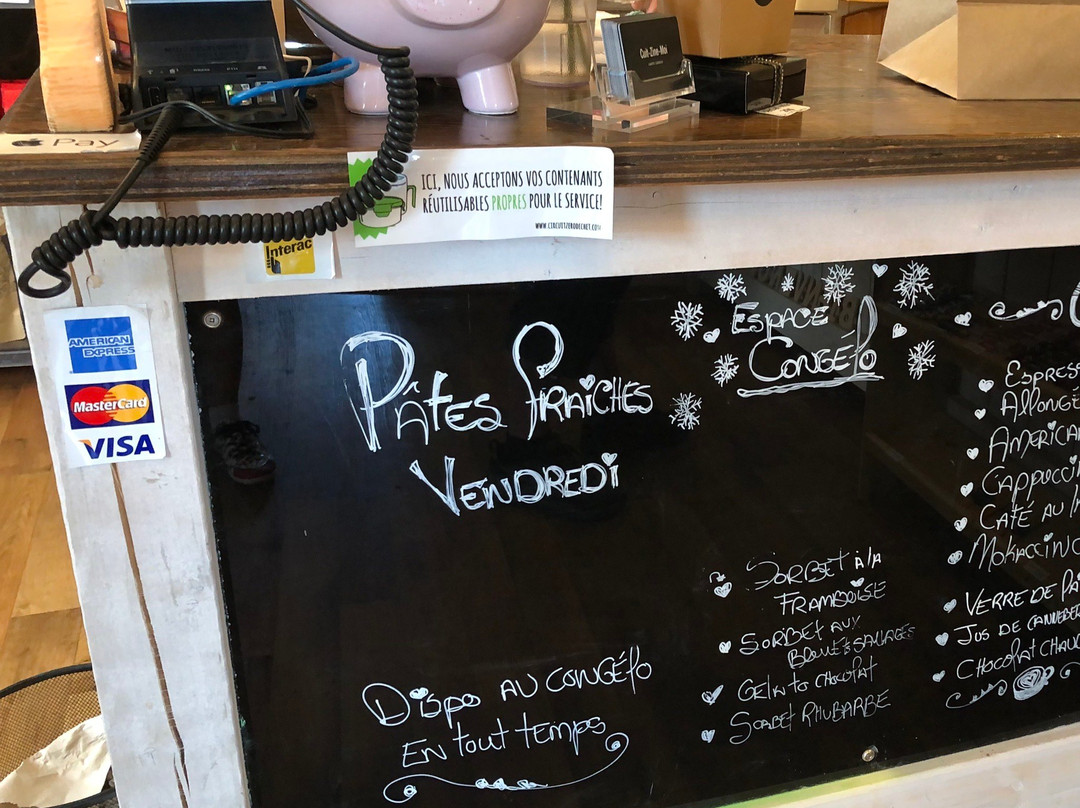 Cuit-Zine-Moi
Pay
ICI, NOUS ACCEPTONS VOS CONTENANTS
RÉUTILISABLES PROPRES POUR LE SERVICE!
WWW.CIRCUITZERODECHET.COM
Interac
AMERICAN
EXPRESS
MasterCard
VISA
PÂTES FRAICHES
VENDREDI
DISPO AU CONGÉLO
EN tout temps
ESPACE
CONGÉLO
SORBET À LA
FRAMBOISE
SORBET AUX
BLEUETS SAUVAGES
GELATO CHOCOLAT
SORBET RHUBARBE
ESPRES
ALLONGÉ
AMERICA
CAPPUCCI
CAFÉ AU
MOKACCINO
VERRE DE
JUS DE CANNEBER
CHOCOLAT CHAU